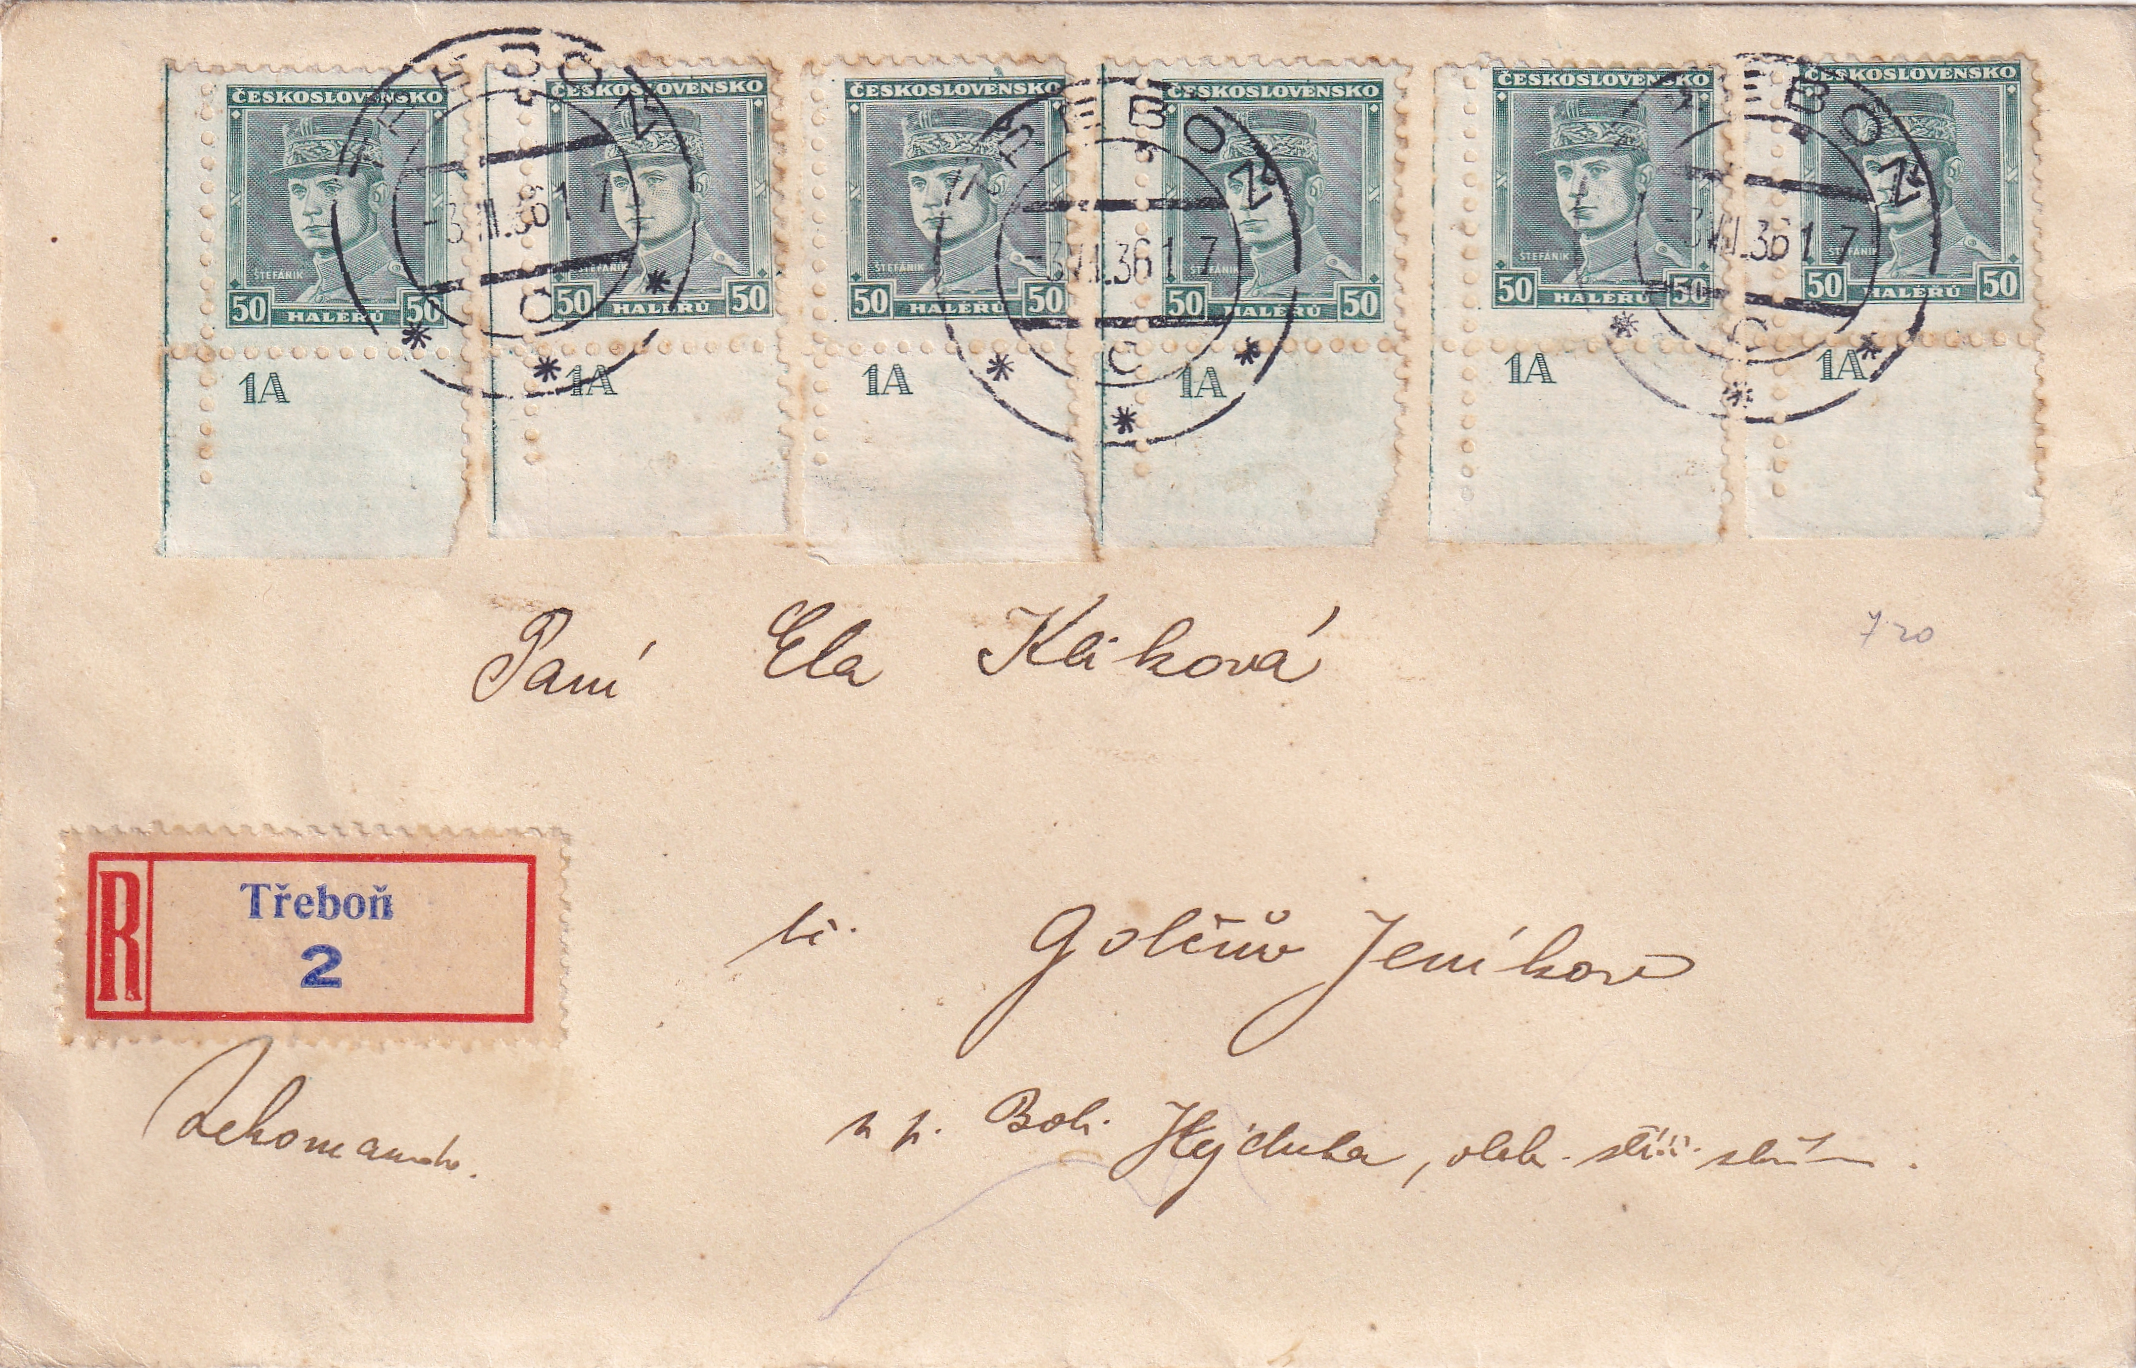 ČESKOSLOVENSKO ČESKOSLOVENSKO ČESKOSLOVENSKO ČESKOSLOVENSKO ČESKOSLOVENSKO ČESKOSLOVENSKO
TŘEBOŇ TŘEBOŇ TŘEBOŇ
36 17 36 17 36 17
ŠTEFÁNIK ŠTEFÁNIK ŠTEFÁNIK ŠTEFÁNIK ŠTEFÁNIK ŠTEFÁNIK
50 HALÉŘŮ 50 50 HALÉŘŮ 50 50 HALÉŘŮ 50 50 HALÉŘŮ 50 50 HALÉŘŮ 50 50 HALÉŘŮ 50
C C C
1A 1A 1A 1A 1A 1A
Paní Ela Kliková
7·20
R Třeboň
2
Golčův Jeníkov
Rekomando.
p. Boh. Hejduka,